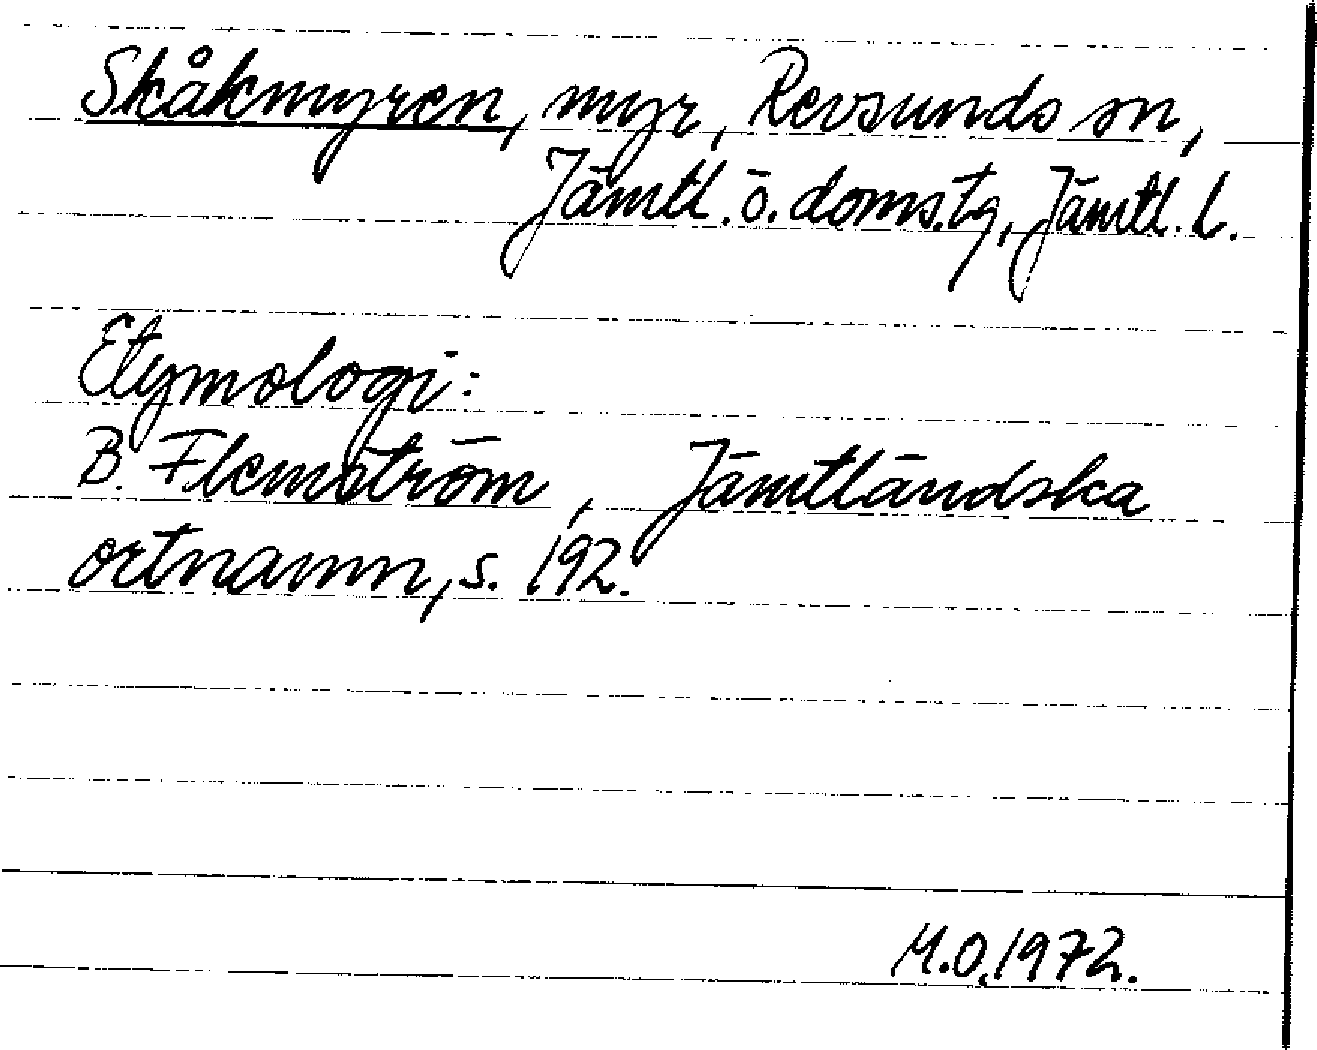 Skåkmyren, myr, Revsunds sn,
Jämtl. ö. doms.tg, Jämtl. l.
Etymologi:
B. Flemström, Jämtländska
ortnamn, s. 192.
M.O.1972.